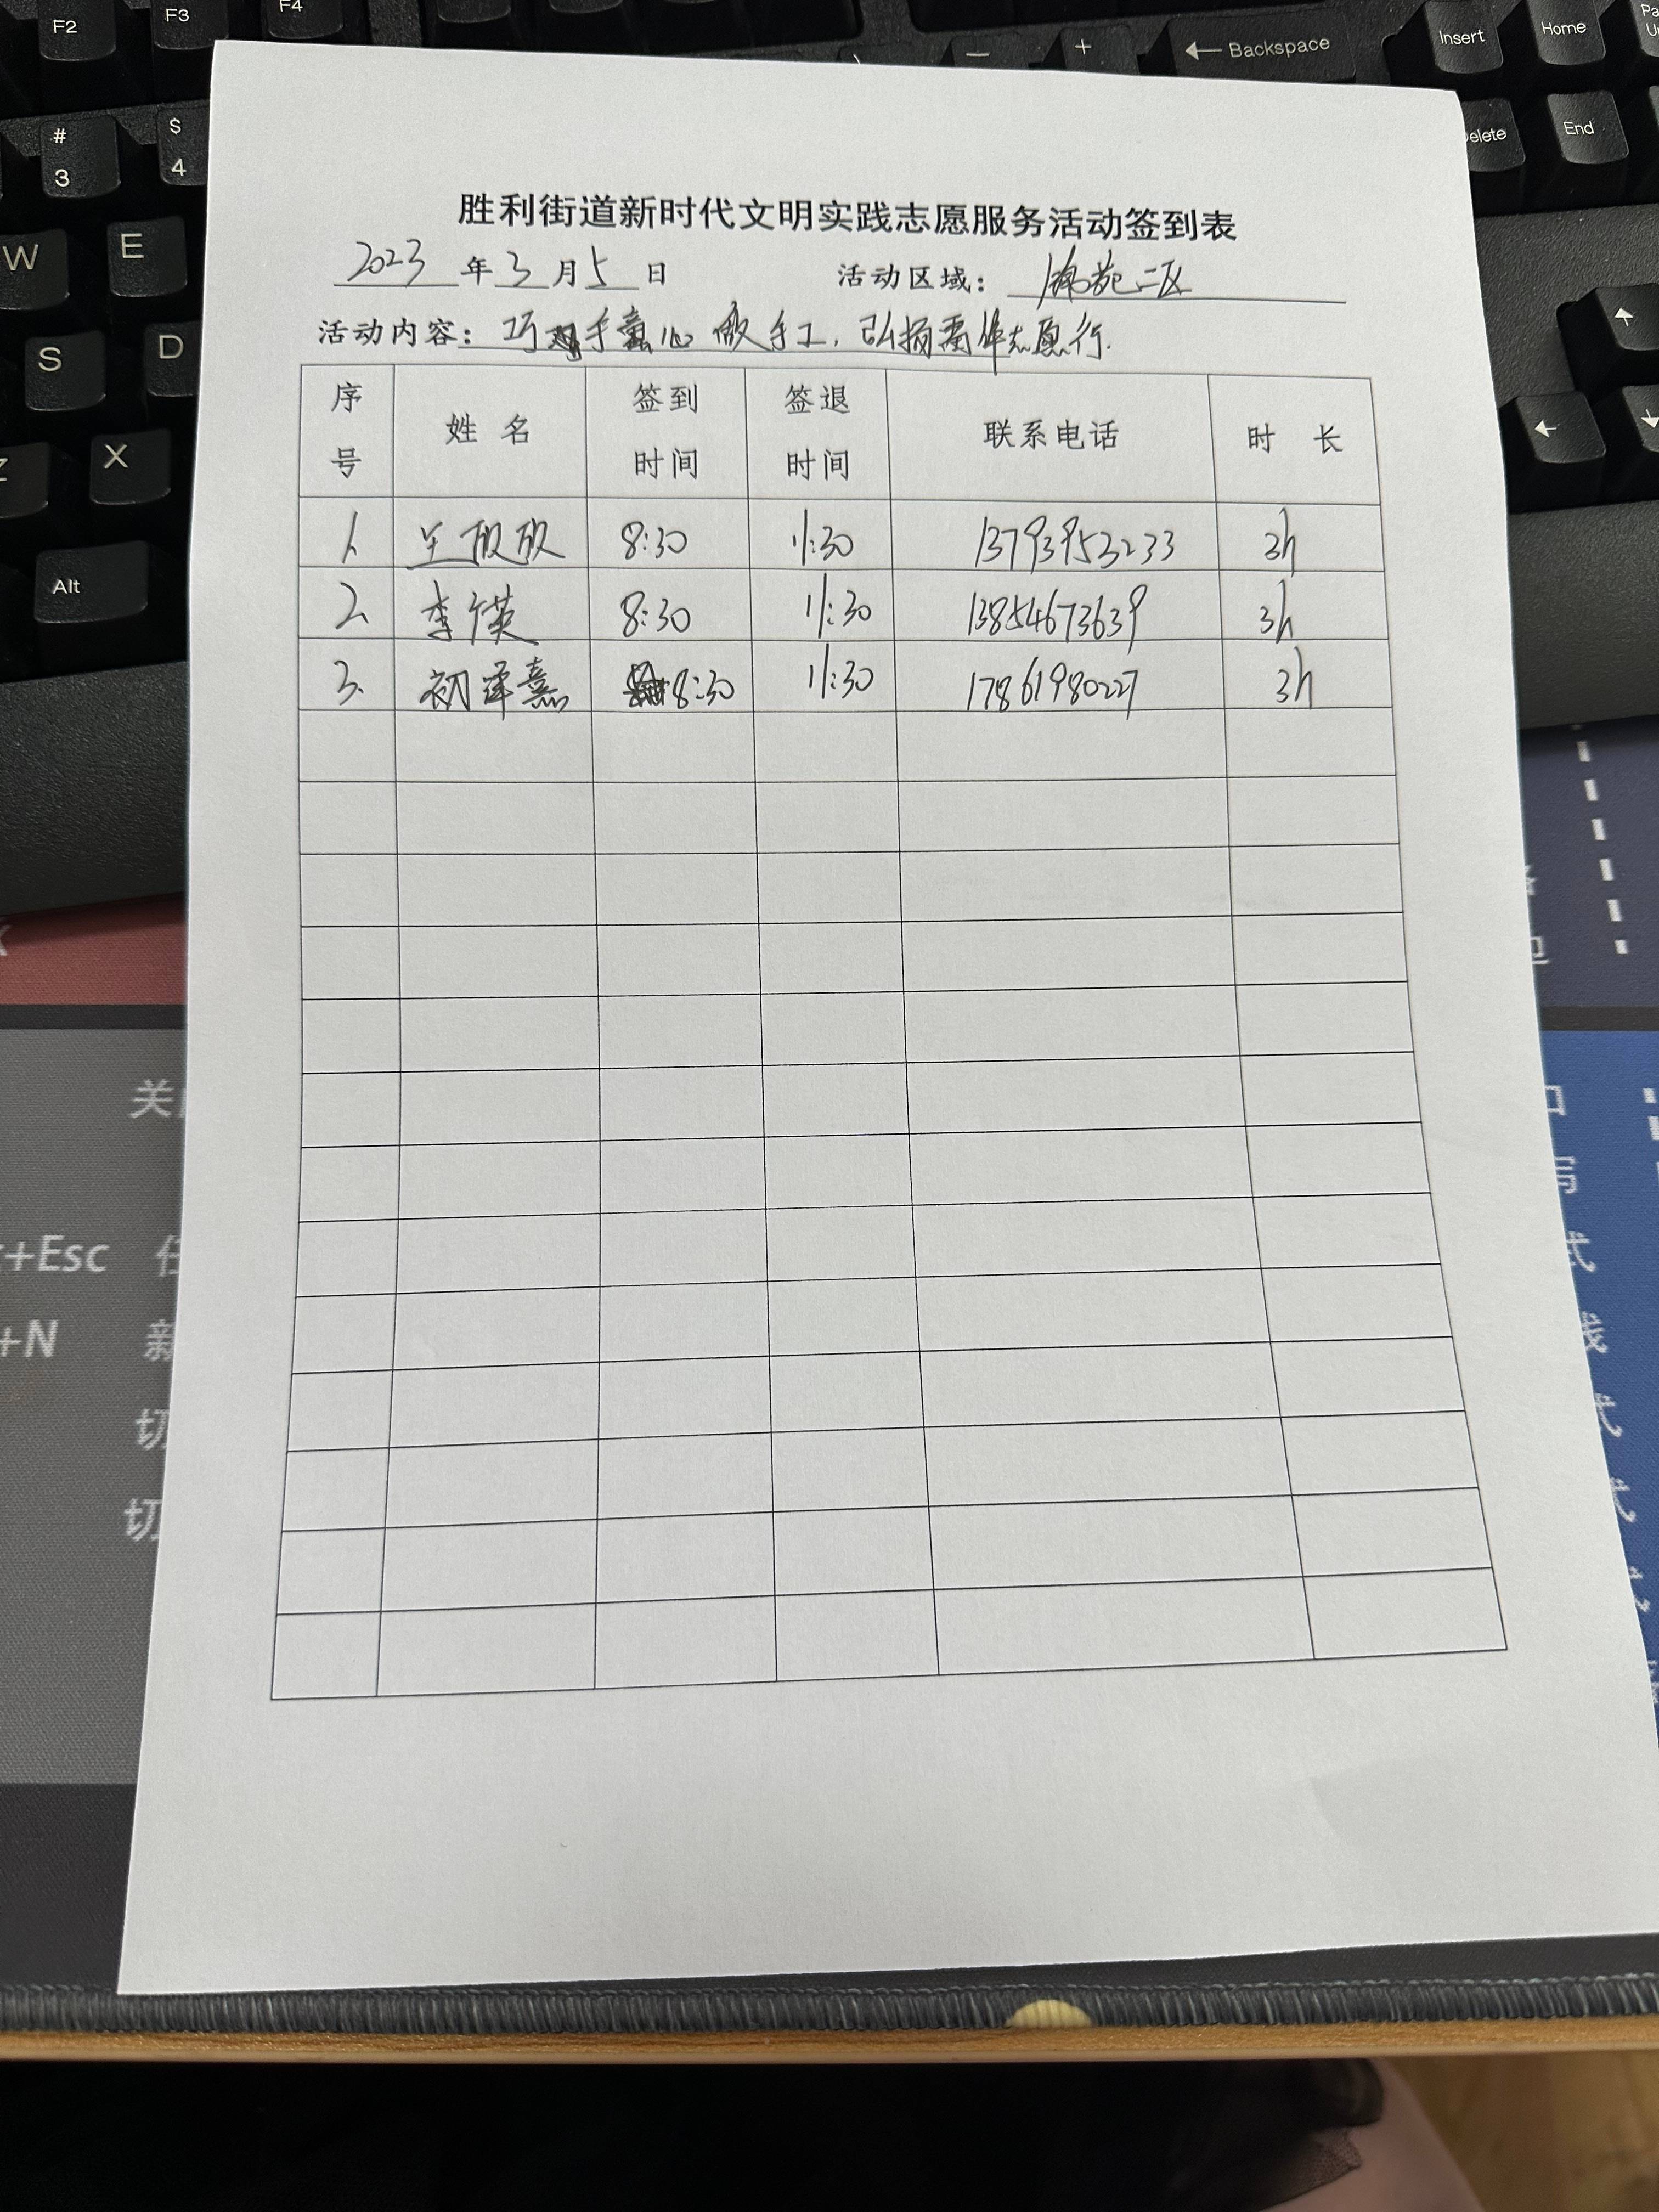 F2 F3 F4
# 3 $ 4 — + ← Backspace Insert Home
W E Delete End
S D
X
Alt
胜利街道新时代文明实践志愿服务活动签到表
2023 年 3 月 5 日 活动区域: 锦苑二区
活动内容: 巧手童心做手工,弘扬雷锋志愿行.
序号 姓名 签到时间 签退时间 联系电话 时长
1. 8:30 11:30 13793953233 3h
2. 李英 8:30 11:30 13854673639 3h
3. 初泽熹 8:30 11:30 17861980227 3h
+Esc
+N 新
切
切